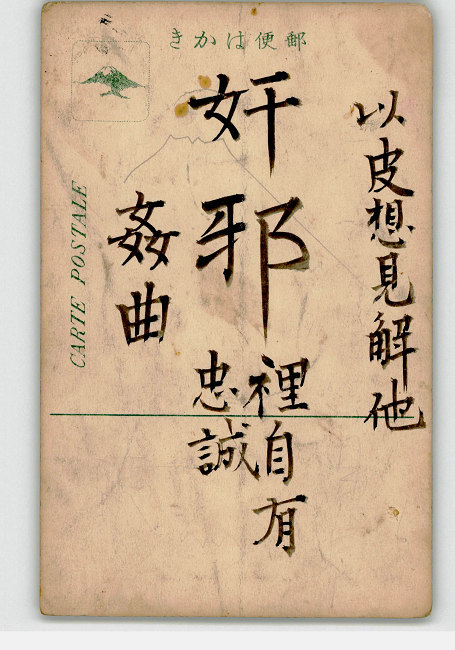 郵便はかき
以皮想見解他
奸邪
裡自有
忠誠
姦曲
CARTE POSTALE